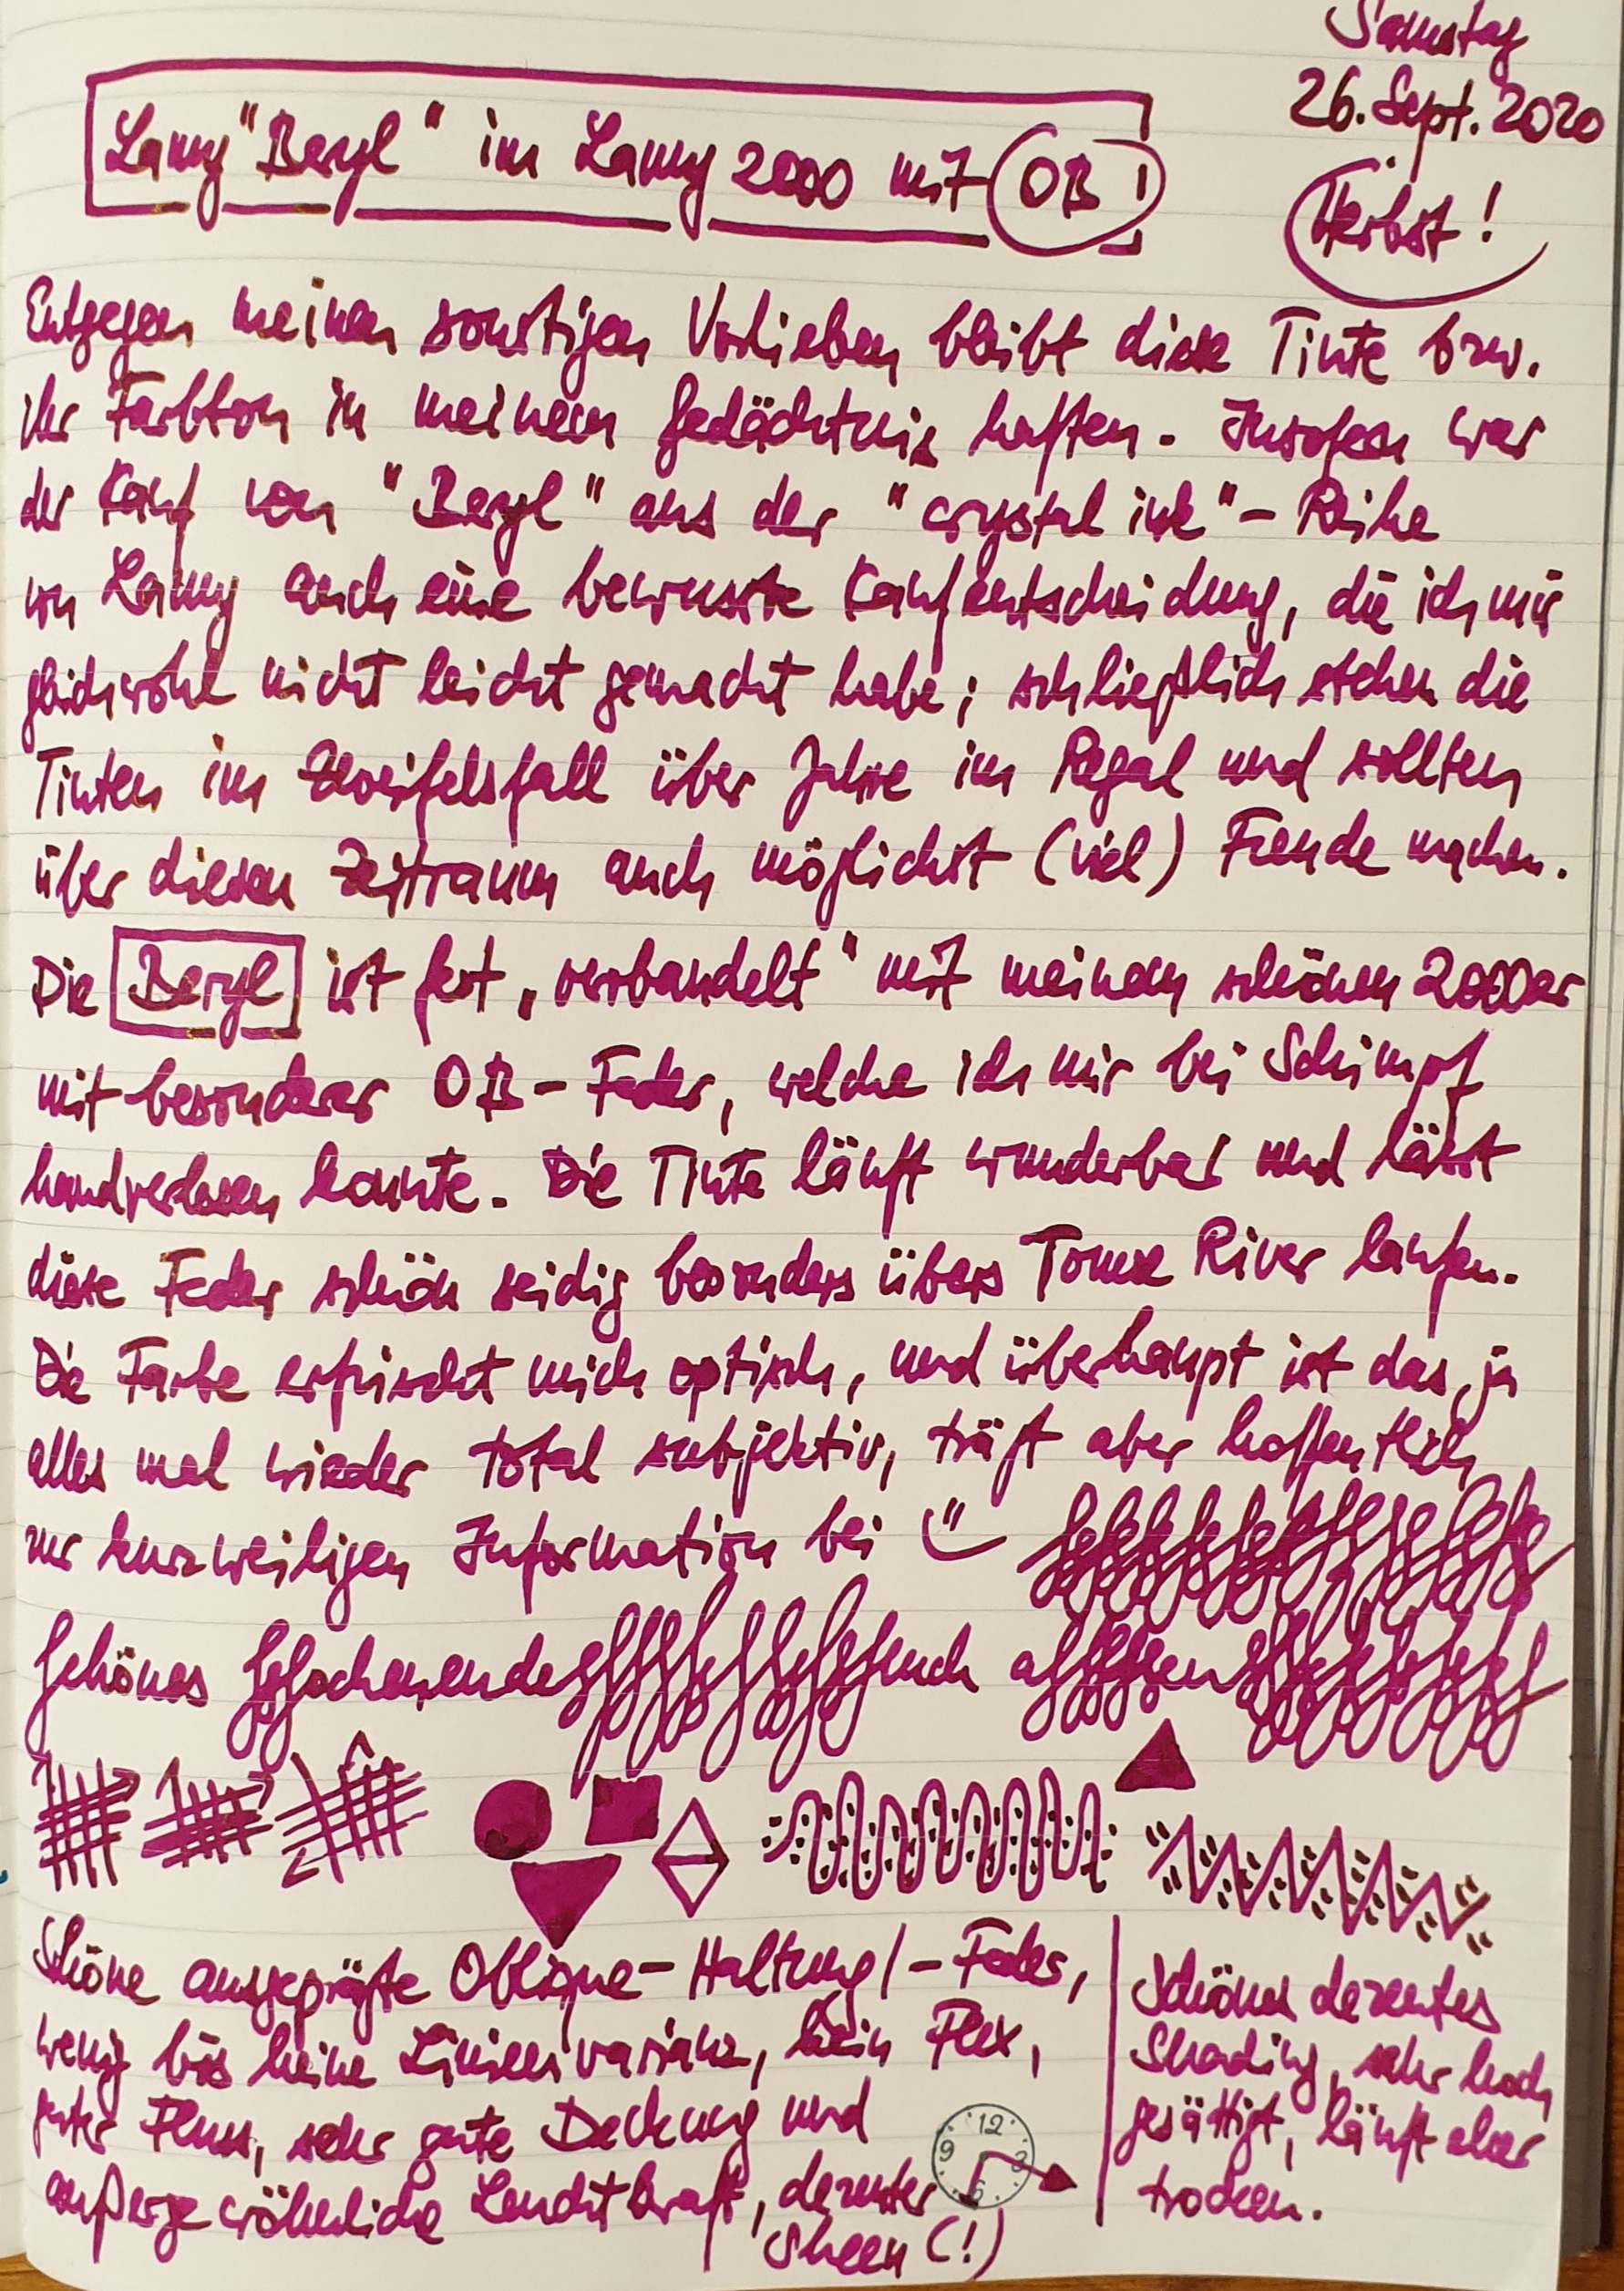 Samstag
26. Sept. 2020
Herbst!
Lamy "Beryl" im Lamy 2000 mit OB!
Entgegen meinen sonstigen Vorlieben bleibt diese Tinte bzw.
ihr Farbton in meinem Gedächtnis haften. Insofern war
der Kauf von "Beryl" aus der "crystal ink"-Reihe
von Lamy auch eine bewusste Kaufentscheidung, die ich mir
gleichwohl nicht leicht gemacht habe; schließlich stehen die
Tinten im Zweifelsfall über Jahre im Regal und sollten
über diesen Zeitraum auch möglichst (viel) Freude machen.
Die Beryl ist fest „verbandelt" mit meinem schönen 2000er
mit besonderer OB-Feder, welche ich mir bei Schimpf
handverlesen konnte. Die Tinte läuft wunderbar und lässt
diese Feder schön seidig besonders übers Tomoe River laufen.
Die Farbe erfrischt mich optisch, und überhaupt ist das ja
alles mal wieder total subjektiv, trägt aber hoffentlich
zur kurzweiligen Information bei
Schönes
Schöne ausgeprägte Oblique-Haltung/-Feder,
wenig bis keine Linienvarianz, kein Flex,
guter Fluss, sehr gute Deckung und
außergewöhnliche Leuchtkraft, dezenter
Sheen (!)
12
3
6
9
Schönes dezentes
Shading, sehr hoch
gesättigt, läuft aber
trocken.